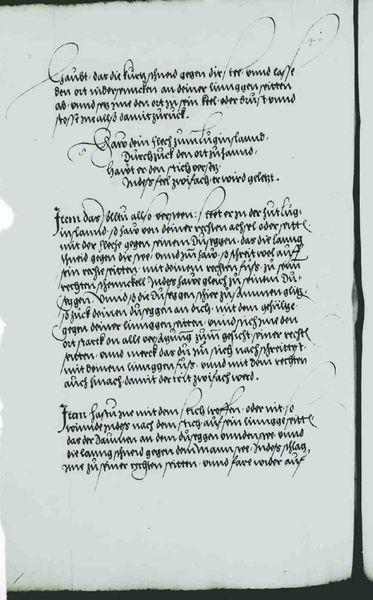 haubt · das die kurtz schneid gegen dir stee · vnnd lasse
den ort nidersinncken an deiner linnggen seitten
ab · vnnd setz ime den ort zu sein keel · oder brust vnnd
stosse ine also damit zuruck ·
Haw dein flech zum luginslannd ·
Durchzuck den ort zuhannd ·
haubt er den stich versetz
Indes feel zwifach · er wirdt geletzt ·
Item das soltu also versteen · steet er in der hut lug-
inslannd · so haw von deiner rechten achsel oder seitt
mit der fleche gegen seinem duseggen · das die lanng
schneid gegen dir stee · vnnd zu haw · so schreit wol auff
sein rechte seitten · mit deinem rechten fuß · zu seim
rechten schennckel · Indes fare gleich zu seinem Du-
seggen · vnnd so die duseggen schier zusammen glitz
so zuck deinen duseggen an dich · mit dem gehiltze
gegen deiner linnggen seitten · vnnd stich ime den
ort starck on alle zum gesicht seiner recht
seitten · vnnd merck das du im stich nachschreittest ·
mit deinem linggen fuß · vnnd mit dem rechten
auch hinach · damit der trit zwifach werd ·
Item hastu ine mit dem stich troffen · oder nit so
winnde Indes nach dem stich auf sein linngge seitt
das der daumen an dem duseggen vnnden stee · vnnd
die lanng schneid gegen dem mann stee · Indes schlag
ime zu seiner rechten seitten · vnnd fare wider auf